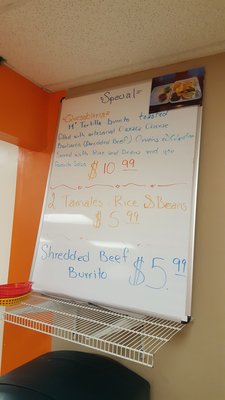 "Special"
14" Tortilla burrito toasted
filled with artesanal Oaxaca Cheese
Barbacoa (Shredded Beef) Onions & Cilantro
Served with Rice and Beans and you
Favorite Salsa $10.99
2 Tamales - Rice & Beans
$5.99
Shredded Beef
Burrito $5.99